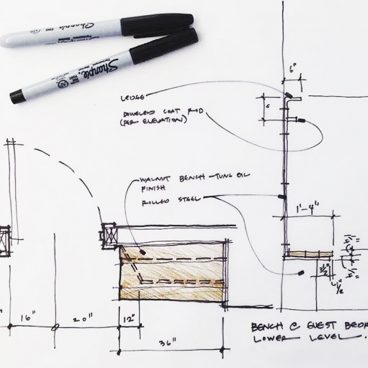 Sharpie
Sharpie
6"
LEDGE
DOWELED COAT ROD
(PER ELEVATION)
6"
WALNUT BENCH - TUNG OIL
FINISH
ROLLED STEEL
1'-4"
16"
20"
12"
36"
BENCH @ GUEST BEDR
LOWER LEVEL.